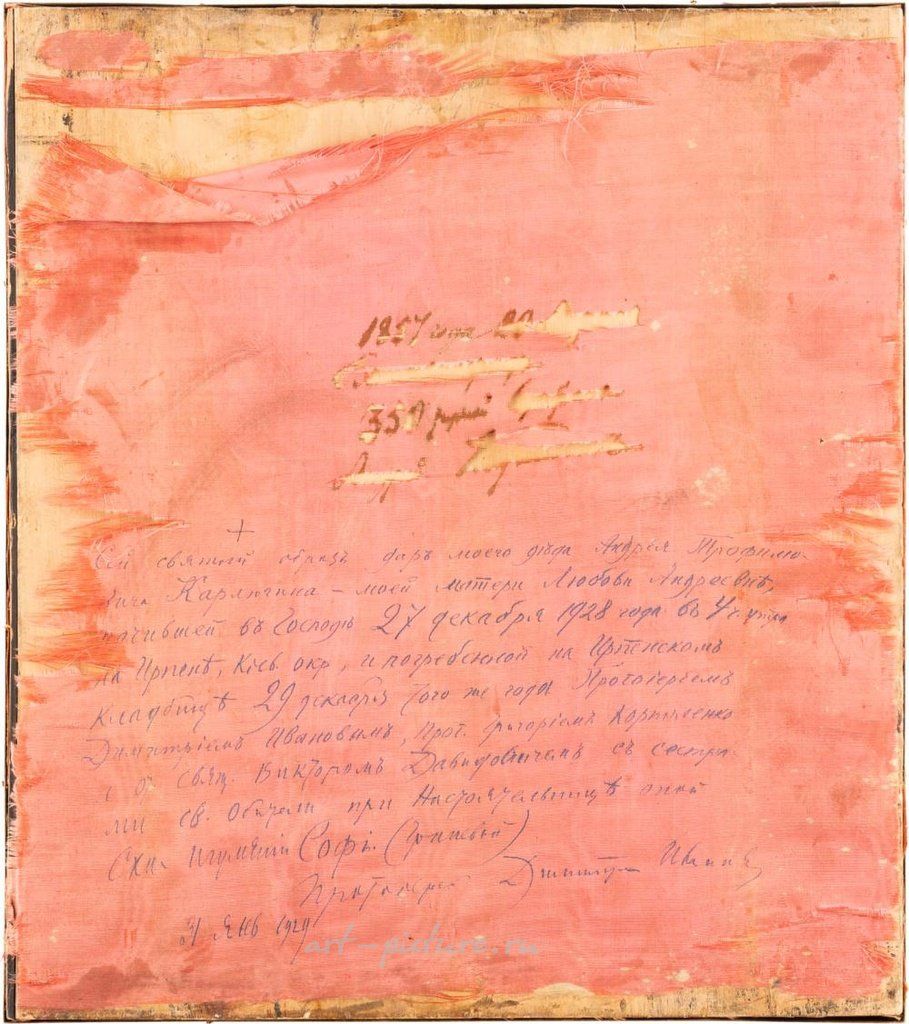 1857 года 20
350 рублей
+
Сей святой образъ даръ моего дѣда Андрея Трофимо-
вича Карпычина – моей матери Любови Андреевнѣ,
почившей въ Господѣ 27 декабря 1928 года въ 4 ч. утра
на Ирпенѣ, Кіев. окр., и погребенной на Ирпенскомъ
кладбищѣ 29 декабря того же года Протоіереемъ
Димитріемъ Ивановымъ, Прот. Григоріемъ
и свящ. Викторомъ Давидовичемъ съ сестра-
ми св. Обители при Настоятельницѣ оной
Схи-игуменіи Софіи (Гриневой)
Протоіерей Димитрій Иванов
1929
art-picture.ru